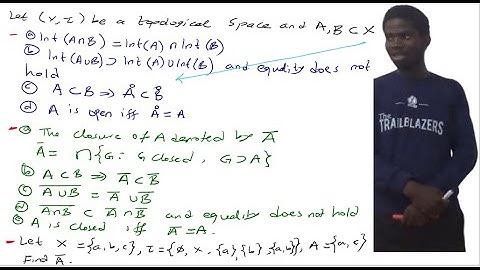 Let (X, τ) be a topological space and A, B ⊂ X
- ⓐ Int (A∩B) = Int(A) ∩ Int(B)
ⓑ Int (A∪B) ⊃ Int(A) ∪ Int(B) and equality does not
hold
ⓒ A ⊂ B ⇒ Å ⊂ B̊
ⓓ A is open iff Å = A
- ⓐ The closure of A denoted by A̅
A̅ = ∩{G : G closed, G ⊃ A}
ⓑ A ⊂ B ⇒ A̅ ⊂ B̅
ⓒ A̅ ∪ B̅ = A̅ ∪ B̅
ⓓ A̅∩̅B̅ ⊂ A̅ ∩ B̅ and equality does not hold
ⓔ A is closed iff A̅ = A.
- Let X = {a, b, c}, τ = {∅, X, {a}, {b}, {a,b}}, A = {a, c}
Find A̅.
The
TRAILBLAZERS